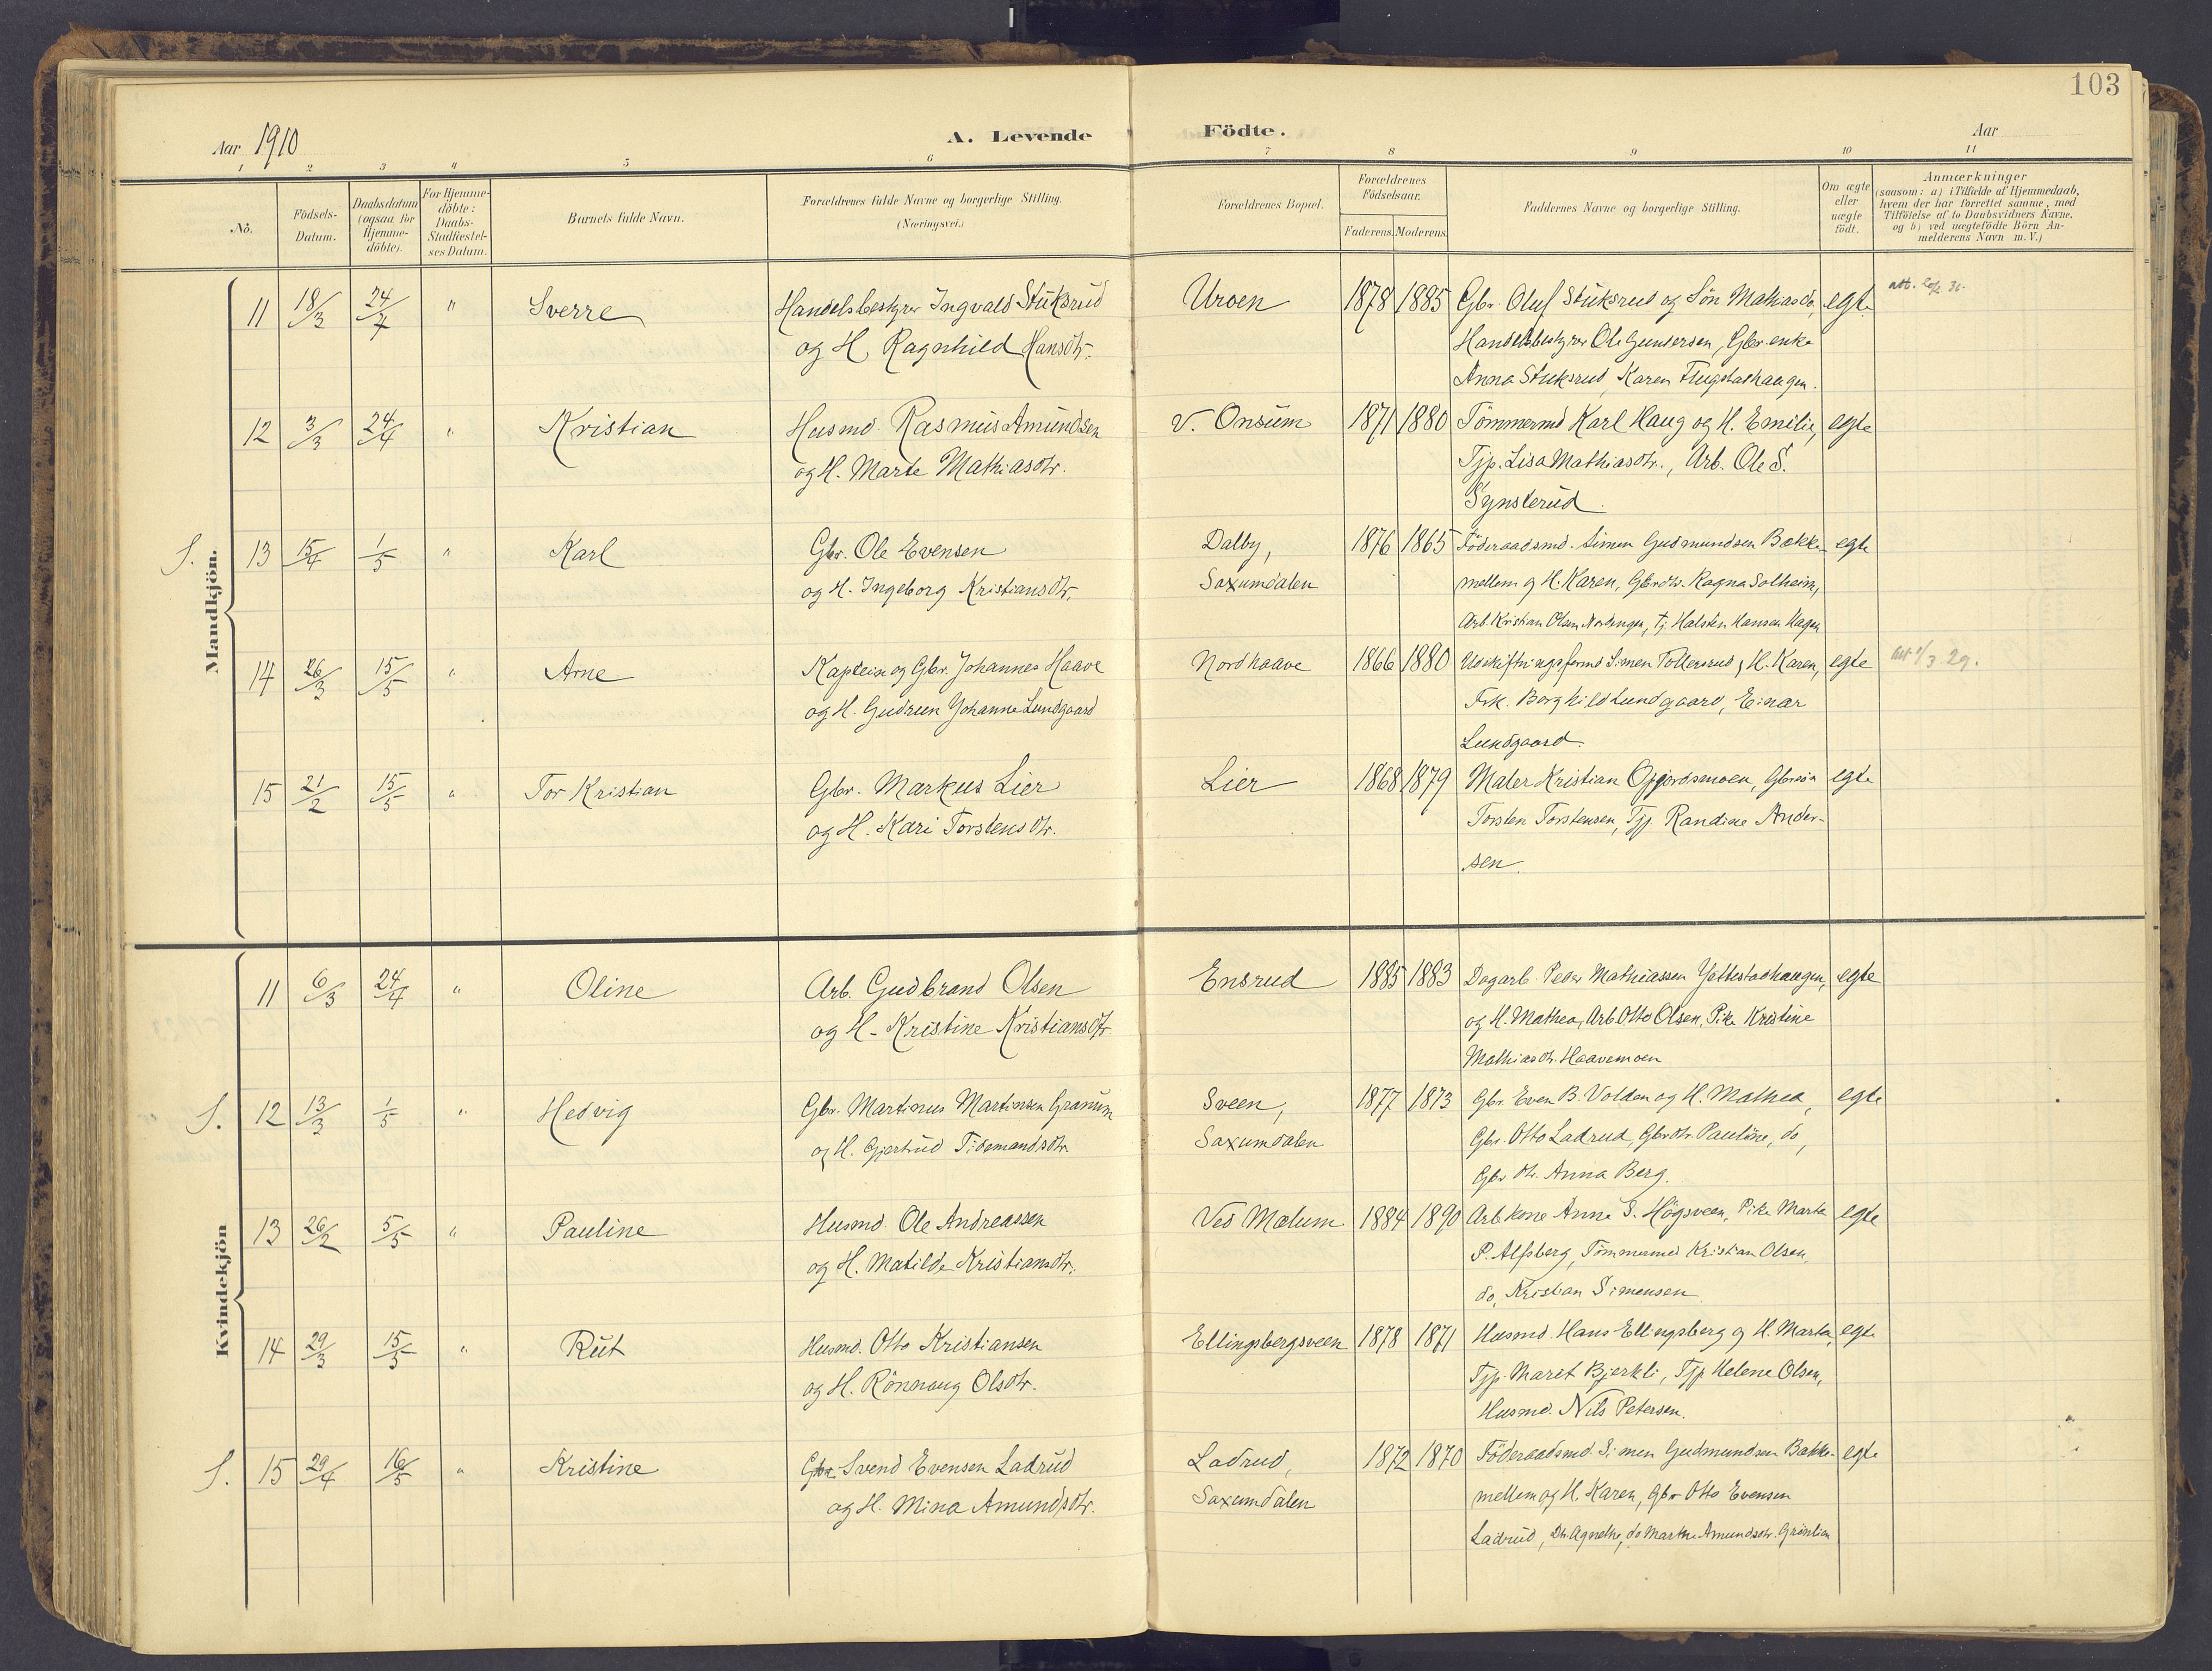 103
Aar 1910
A. Levende Födte.
Aar
1 2 3 4 5 6 7 8 9 10 11
No.
Födsels-Datum.
Daabsdatum (ogsaa for Hjemme-döbte).
For Hjemme-döbte: Daabs-Stadfæstel-ses Datum.
Barnets fulde Navn.
Forældrenes fulde Navne og borgerlige Stilling. (Næringsvei.)
Forældrenes Bopæl.
Forældrenes Födselsaar.
Faderens. Moderens.
Faddernes Navne og borgerlige Stilling.
Om ægte eller uægte födt.
Anmærkninger
(saasom: a) i Tilfælde af Hjemmedaab, hvem der har forrettet samme, med Tilföielse af to Daabsvidners Navne, og b) ved uægtefödte Börn An-melderens Navn m. V.)
Mandkjön.
11 18/3 24/4 " Sverre Handelsbestyrer Ingvald Stuksrud Uroen 1878 1885 Gbr. Oluf Stuksrud og Sön Mathias do, egte
og H. Ragnhild Hansdtr. Handelsbestyrer Ole Gundersen, Gbr.enke
Anna Stuksrud, Karen Flugstadhaugen.
12 3/3 24/4 " Kristian Husmd. Rasmus Amundsen v. Onsum 1871 1880 Tömmermd Karl Haug og H. Emilie, egte
og H. Marte Mathiasdtr. Tjp. Lisa Mathiasdtr., Arb. Ole S.
Synsterud.
S. 13 15/4 1/5 " Karl Gbr. Ole Evensen Dalby, 1876 1865 Föderaadsmd. Simen Gudmundsen Bække- egte
og H. Ingeborg Kristiansdtr. Saxumdalen mellem og H. Karen, Gbrdtr. Ragna Solheim,
Arb. Kristian Olsen Nordengen, Tj. Halsten Hansen Hagen
14 26/3 15/5 " Arne Kaptein og Gbr. Johannes Haave Nordhaave 1866 1880 Udskiftningsformd Simen Tollersrud og H. Karen, egte
og H. Gudrun Johanne Lundgaard Frk. Borghild Lundgaard, Einar
Lundgaard.
15 21/2 15/5 " Tor Kristian Gbr. Markus Lier Lier 1868 1879 Maler Kristian Opjordsmoen, Gbrsön egte
og H. Kari Torstensdtr. Torsten Torstensen, Tjp. Randine Ander-
sen.
Kvindekjön
11 6/3 24/4 " Oline Arb. Gudbrand Olsen Ensrud 1885 1883 Dagarb. Peder Mathiassen Jettestadhaugen, egte
og H. Kristine Kristiansdtr. og H. Mathea, Arb. Otto Olsen, Pike Kristine
Mathiasdtr. Haavemoen
S. 12 13/3 1/5 " Hedvig Gbr. Martinus Martinsen Granum Sveen, 1877 1873 Gbr. Even B. Volden og H. Mathea, egte
og H. Gjertrud Tidemandsdtr. Saxumdalen Gbr. Otto Ladrud, Gbrdtr. Pauline, do,
Gbr. dtr. Anna Berg.
13 26/2 5/5 " Pauline Husmd. Ole Andreassen Ved Mælum 1884 1890 Arb.kone Anne S. Högsveen, Pike Marta egte
og H. Matilde Kristiansdtr. P. Alfsberg, Tömmermd Kristian Olsen,
do, Kristian Simensen
14 29/3 15/5 " Rut Husmd. Otto Kristiansen Ellingsbergsveen 1878 1871 Husmd. Hans Ellingsberg og H. Marta, egte
og H. Rönnaug Olsdtr. Tjp. Marit Bjerkli, Tjp. Helene Olsen,
Husmd. Nils Petersen.
S. 15 29/4 16/5 " Kristine Gbr. Svend Evensen Ladrud Ladrud, 1872 1870 Föderaadsmd. Simen Gudmundsen Bække- egte
og H. Mina Amundsdtr. Saxumdalen mellem og H. Karen, Gbr Otto Evensen
Ladrud, Dtr. Agnethe, do Marthe Amundsdtr. Grönlien